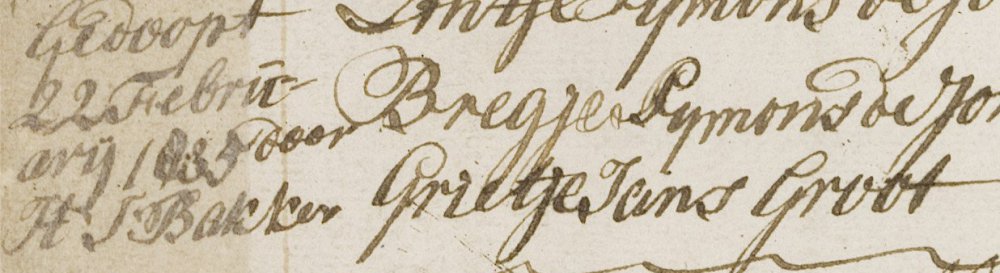 Gedoopt
22 Febru-
ary 1835 door
H. J. Bakker
Symons de Jo
Bregje Symons de Jon
Grietje Jans Groot